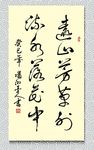 遠山芳草外
流水落花中
癸巳年
書